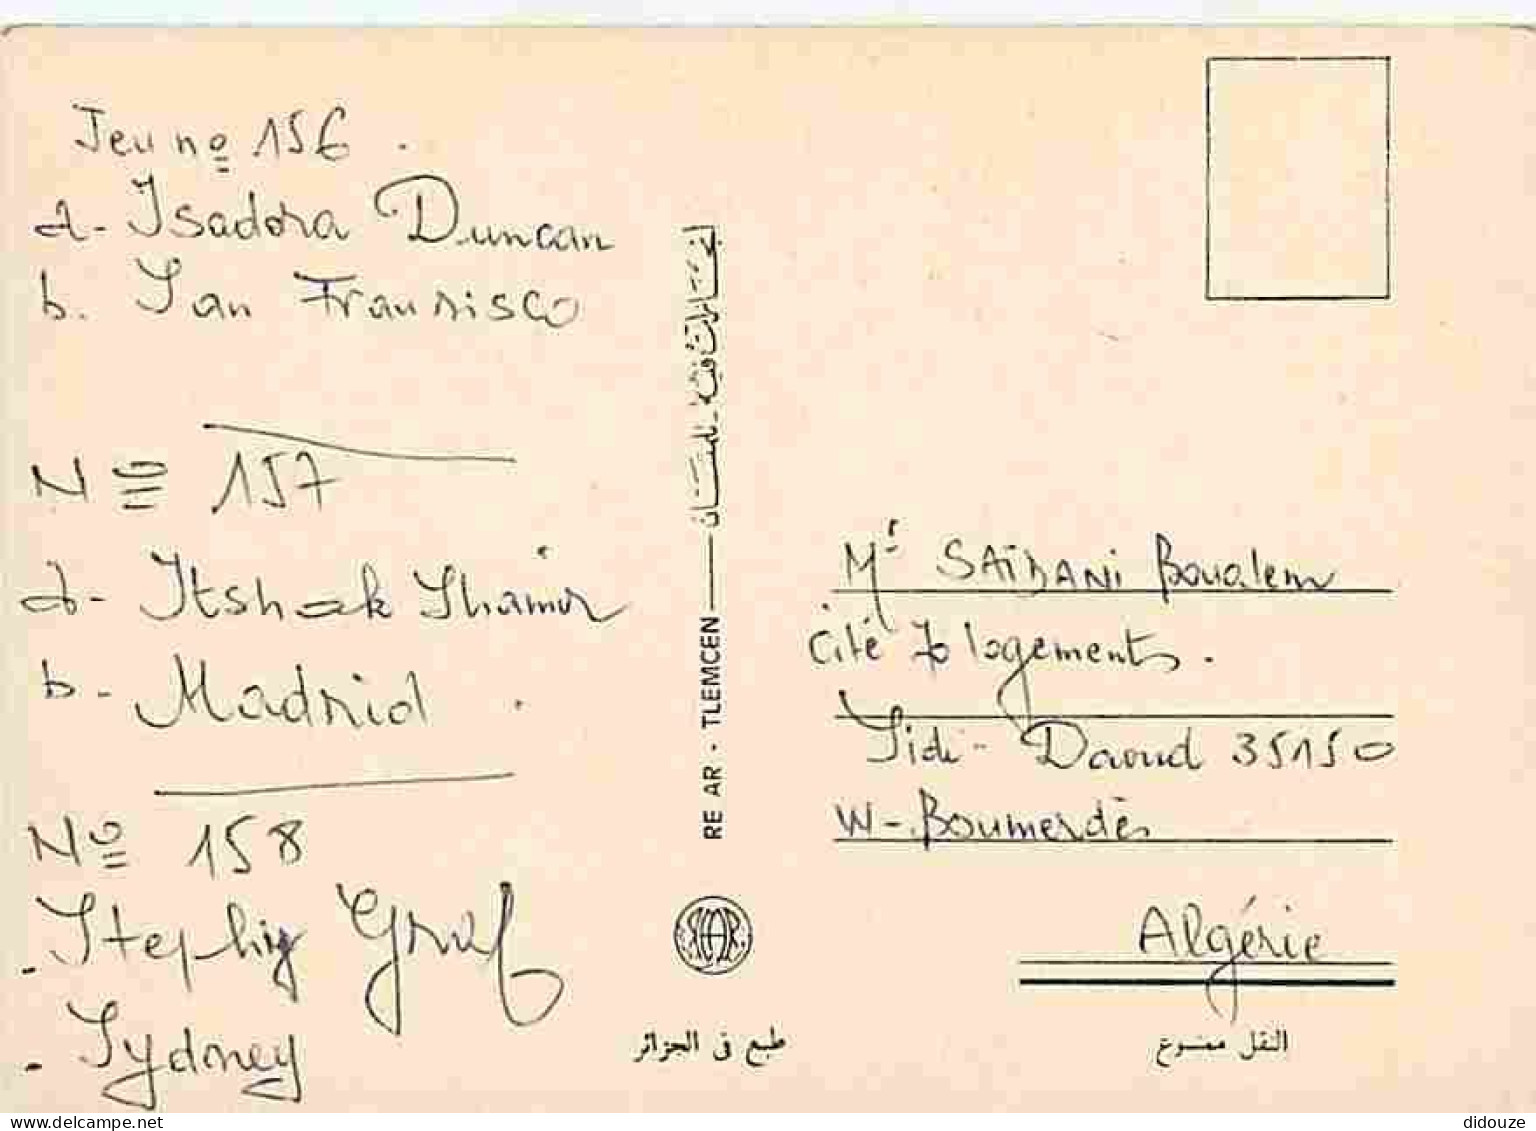 Jeu nº 156.
a- Isadora Duncan
b. San Fransisco
Nº 157
a- Itshak Shamir
b- Madrid.
Nº 158
- Stephy Graf
- Sydney
RE AR · TLEMCEN
طبع في الجزائر
Mr SAÏBANI Boualem
Cité 70 logements.
Sidi-Daoud 35150
W-Boumerdès
Algérie
النقل ممنوع
delcampe.net
didouze